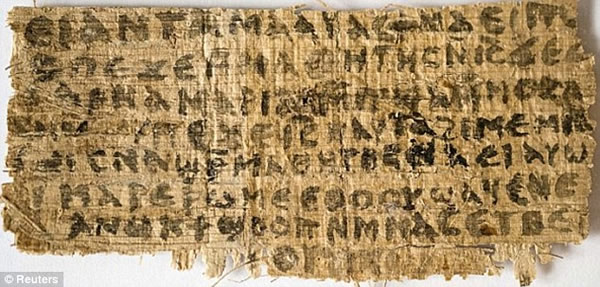 ⲉⲓ ⲁⲛ ⲧⲁⲙⲁⲁⲩ ⲁⲥϯ ⲛⲁⲉⲓ ⲡⲱ
ⲡⲉϫⲉ ⲙⲙⲁⲑⲏⲧⲏⲥ ⲛⲓⲥ ϫⲉ ⲥ
ⲁⲣⲛⲁ ⲙⲁⲣⲓⲁⲙ ⲙⲡϣⲁ ⲙⲙⲟⲥ ⲁ
ⲡⲉϫⲉ ⲓⲥ ⲛⲁⲩ ⲧⲁϩⲓⲙⲉ ⲙⲛ
ⲥⲛⲁϣⲣⲙⲁⲑⲏⲧⲏⲥ ⲛⲁⲉⲓ ⲁⲩⲱ
ⲓ ⲙⲁⲣⲉⲣⲱⲙⲉ ⲉⲑⲟⲟⲩ ϣⲁϥⲉ ⲛⲉ
ⲁⲛⲟⲕ ϯϣⲟⲟⲡ ⲛⲙⲙⲁⲥ ⲉⲧⲃⲉ
© Reuters